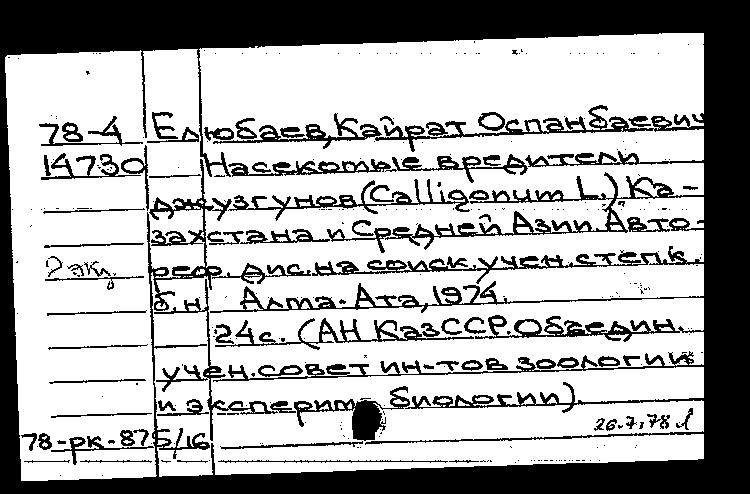 78-4 Елюбаев, Кайрат Оспанбаевич
14730 Насекомые вредители
джузгунов (Calligonum L.) Ка-
захстана и Средней Азии. Авто-
2 экз. реф. дис. на соиск. учен. степ. к.
б. н. Алма-Ата, 1974.
24с. (АН КазССР. Объедин.
учен. совет ин-тов зоологии
и эксперим. биологии).
26.7.78
78-рк-875/16